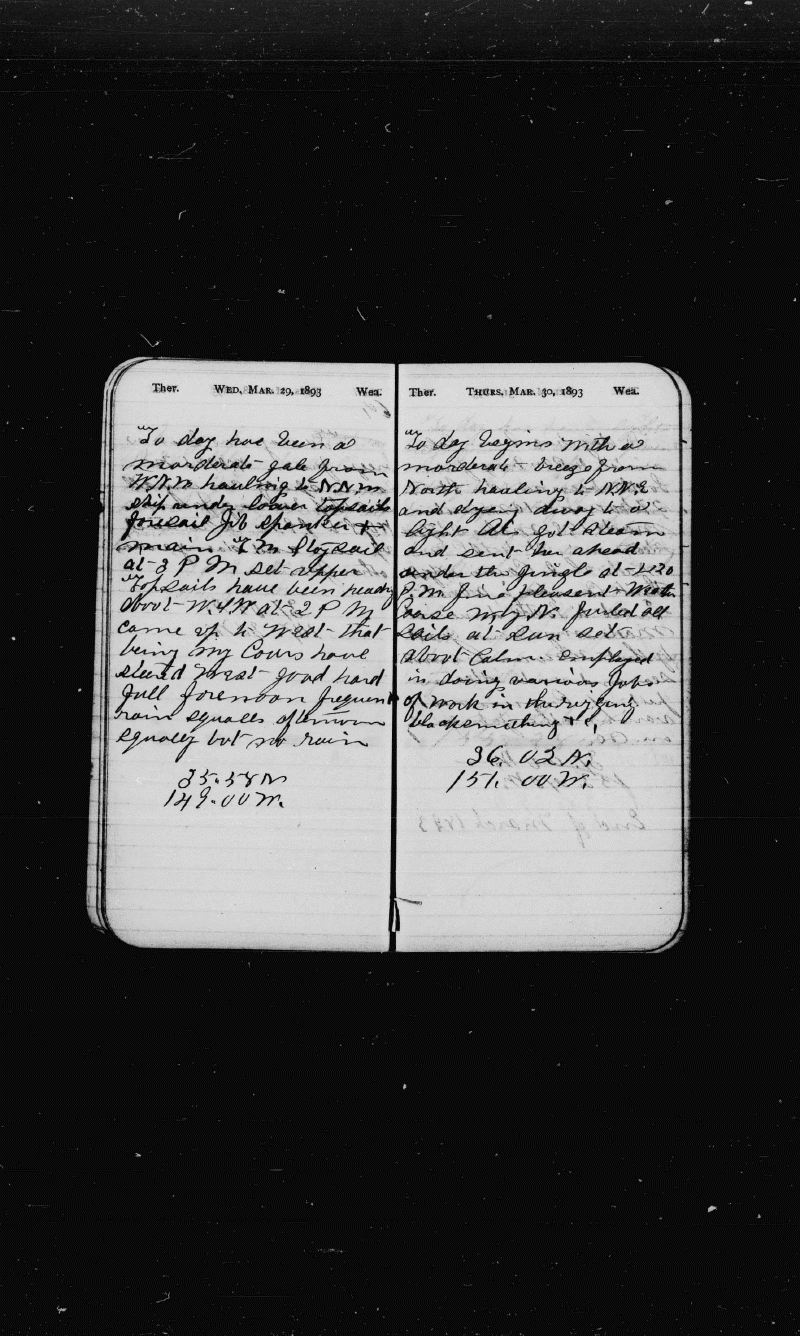 Ther. WED. MAR. 29, 1893 Wea.
To day have been a
morderate gale from
W.N.W hauling to N.N.W
ship under lower topsails
foresail Jib Spanker +
main T.M Staysail
at 3 P M set upper
Topsails have been heady
about W.S.W at 2 P M
came up to West that
being my Cours have
steerd West good hard
full forenoon frequent
rain squalls afternoon
squaly but no rain
35.58 N
149.00 W.
Ther. THURS. MAR. 30, 1893 Wea.
To day begins with a
morderate breeze from
North hauling to N.N.E
and dying away to a
light Air got steam
and sent her ahead
under the Jingle at 4.30
P.M. fine pleasent Weather
Course W by N. furled all
Sails at Sun set
about Calm. employed
in doing various Jobs
of work in the rigging
blacksmithing + c,
36. 02 N.
151. 00 W.
End of March 1893